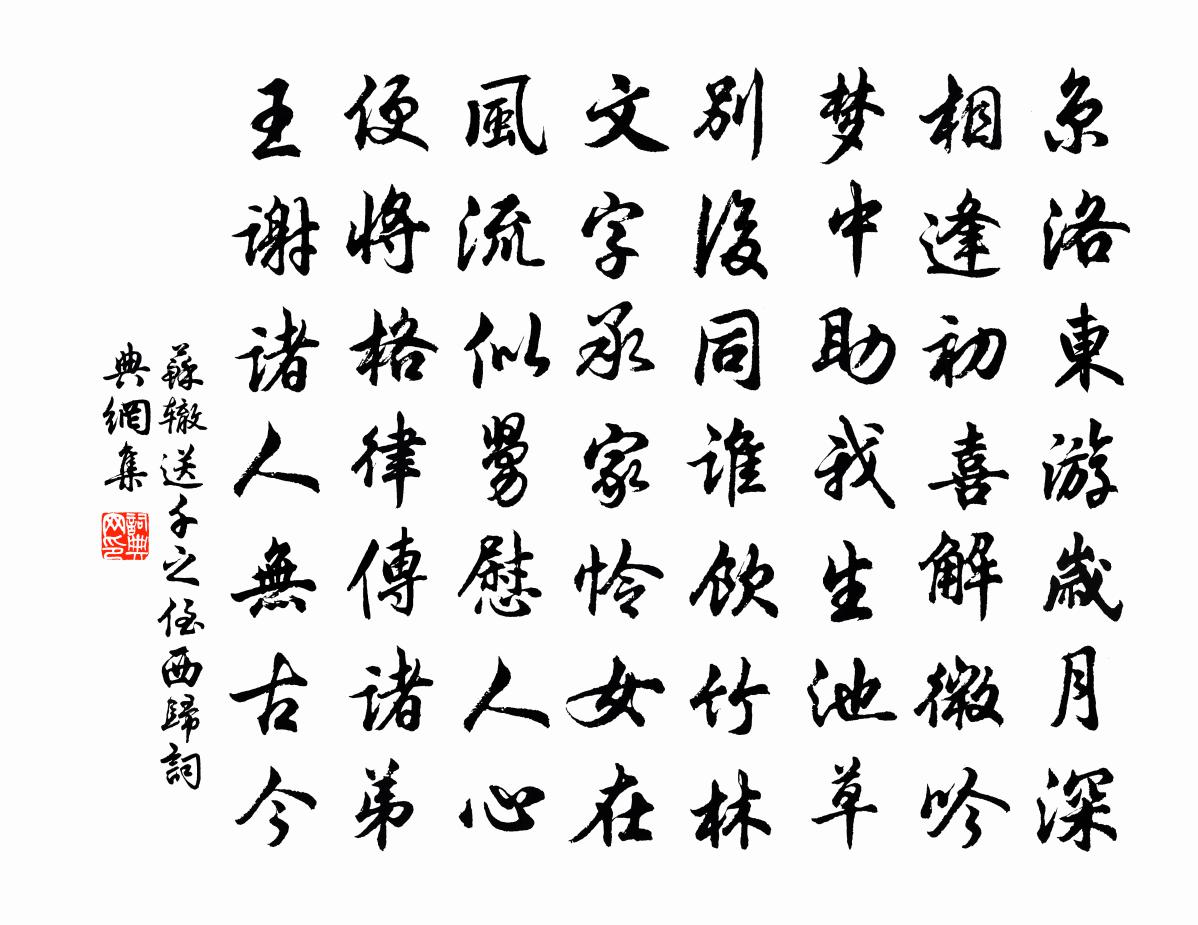 京洛東游歲月深
相逢初喜解微吟
梦中助我生池草
別後同誰飲竹林
文字承家怜女在
風流似舅慰人心
便將格律傳諸弟
王謝諸人無古今
蘇轍送千之侄西歸詞
典網集
詞典
网印